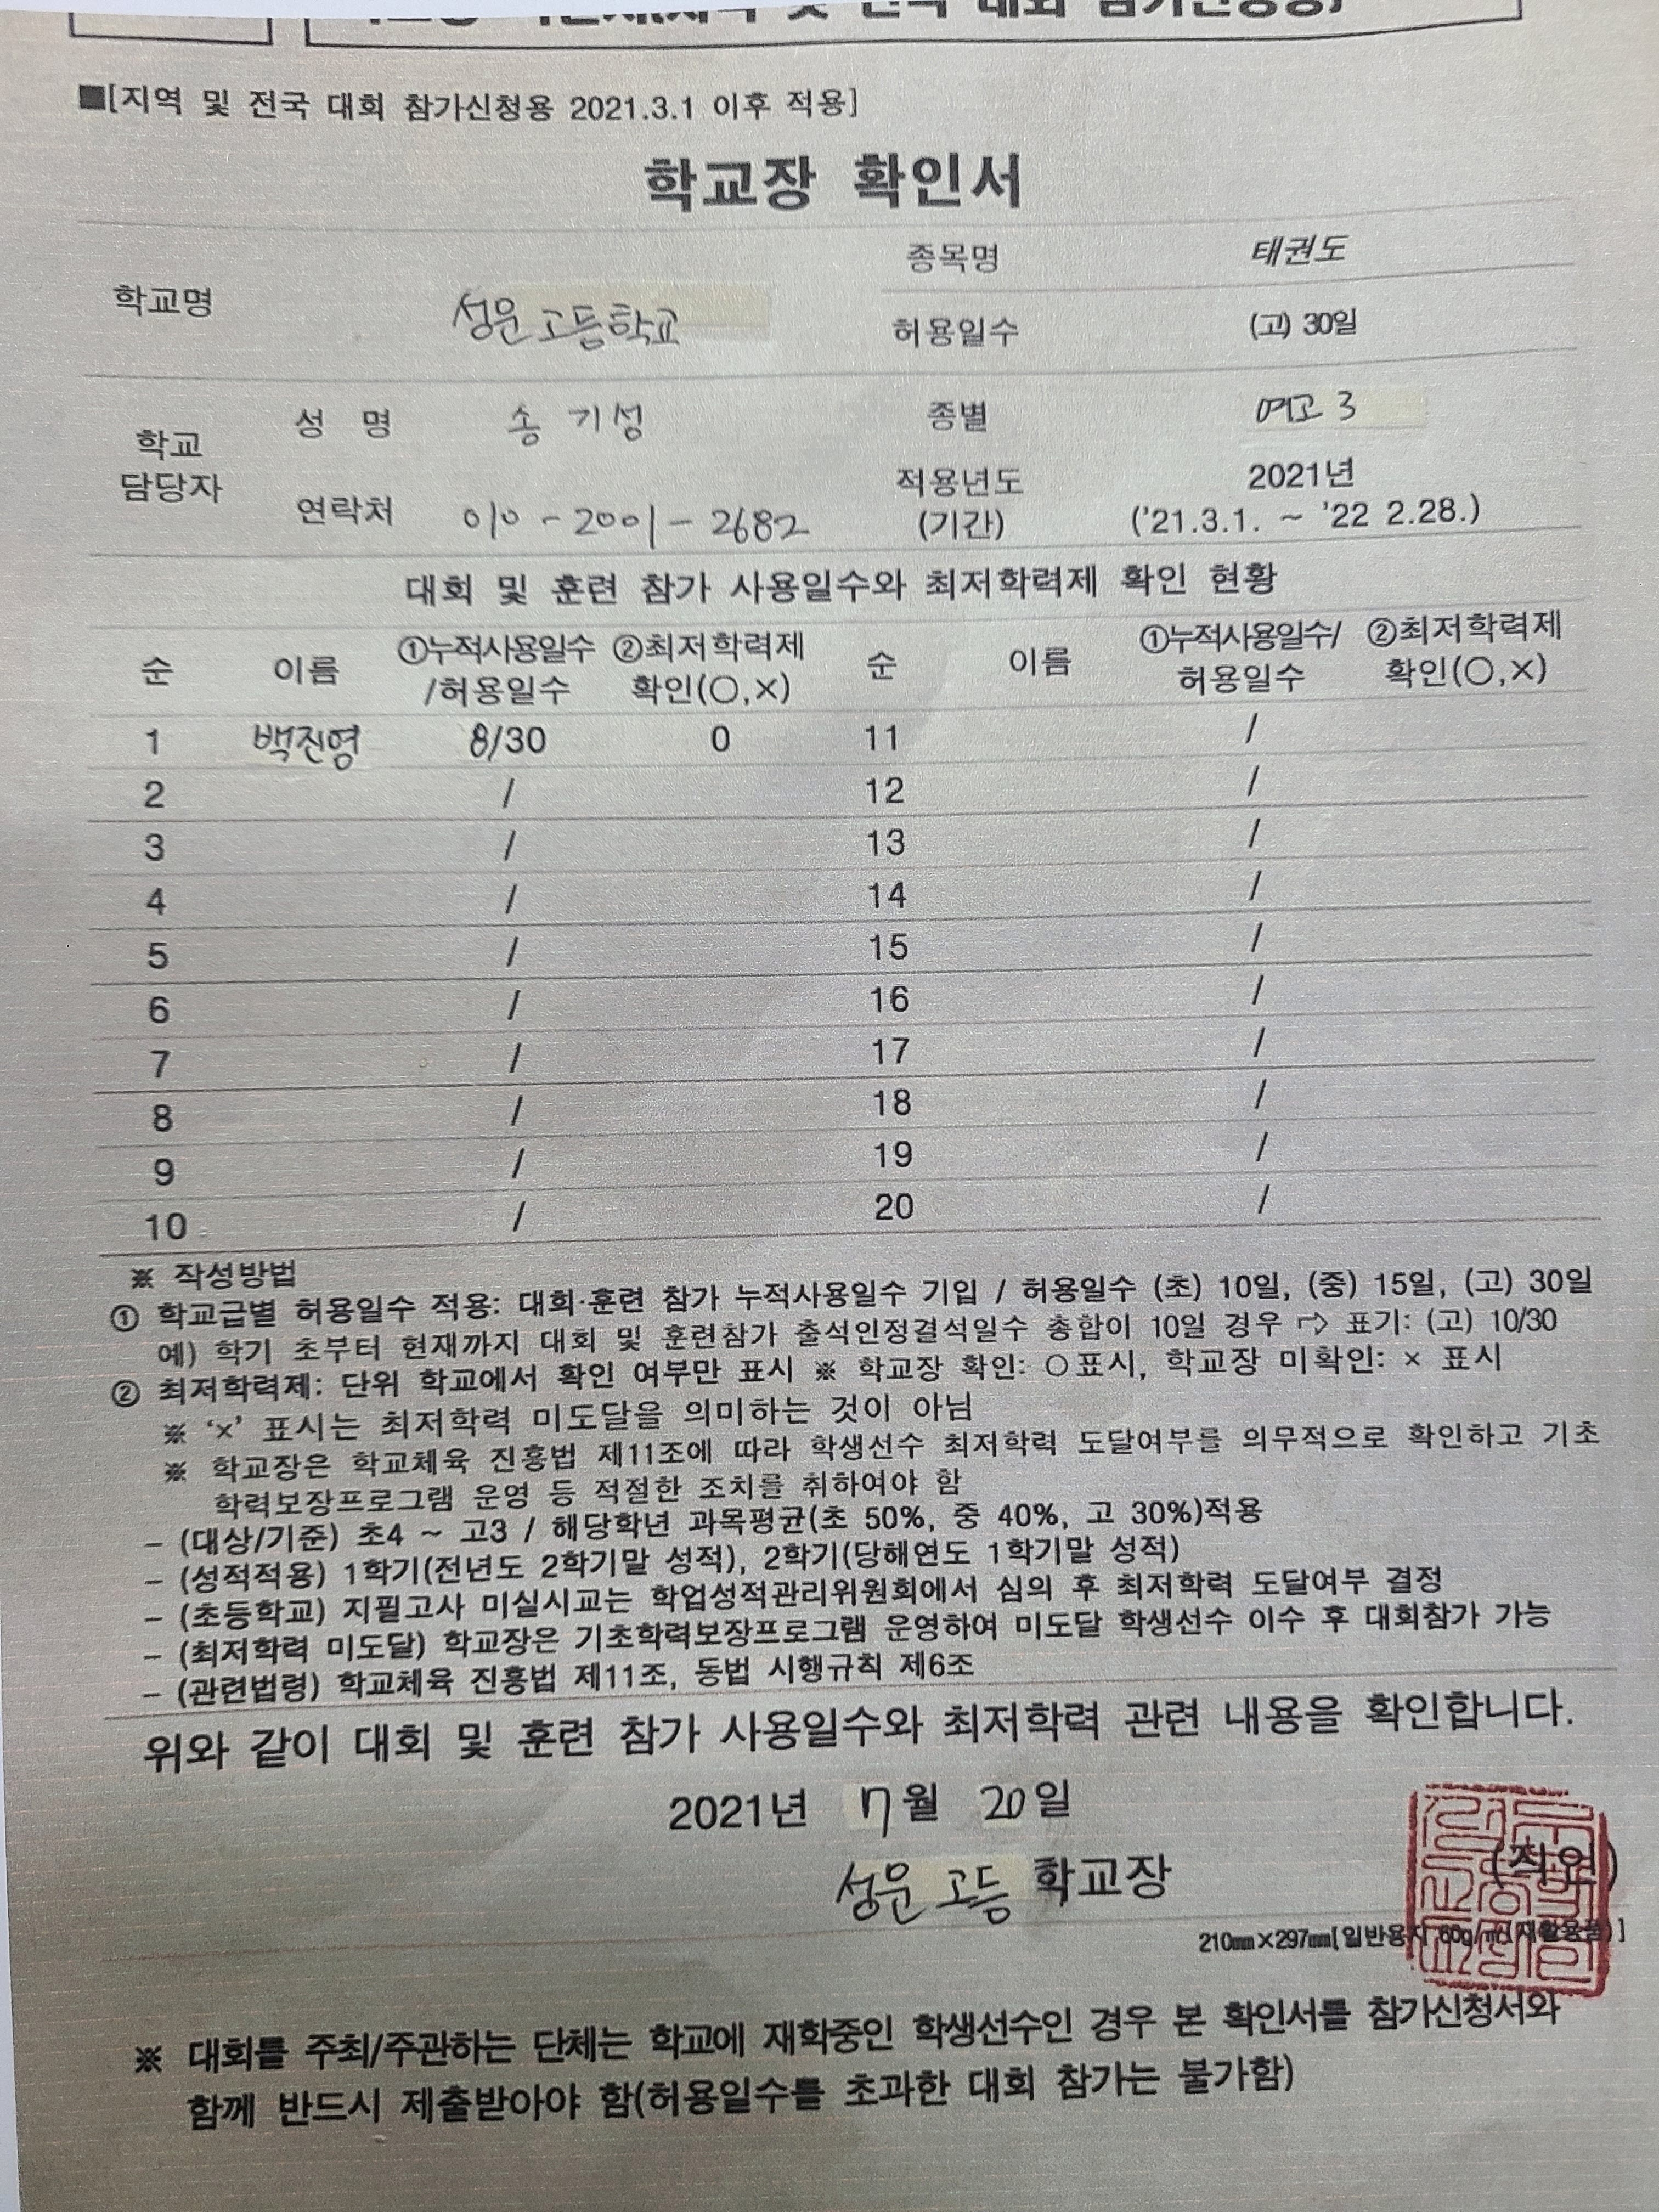 ■[지역 및 전국 대회 참가신청용 2021.3.1 이후 적용]
학교장 확인서
학교명 성운고등학교 종목명 태권도
허용일수 (고) 30일
학교 담당자 성 명 송 기성 종별 여고 3
연락처 010-2001-2682 적용년도 (기간) 2021년 ('21.3.1. ~ '22 2.28.)
대회 및 훈련 참가 사용일수와 최저학력제 확인 현황
순 이름 ①누적사용일수 /허용일수 ②최저학력제 확인(○,×) 순 이름 ①누적사용일수/ 허용일수 ②최저학력제 확인(○,×)
1 백진영 8/30 0 11 /
2 / 12 /
3 / 13 /
4 / 14 /
5 / 15 /
6 / 16 /
7 / 17 /
8 / 18 /
9 / 19 /
10 / 20 /
※ 작성방법
① 학교급별 허용일수 적용: 대회·훈련 참가 누적사용일수 기입 / 허용일수 (초) 10일, (중) 15일, (고) 30일
예) 학기 초부터 현재까지 대회 및 훈련참가 출석인정결석일수 총합이 10일 경우 ⇨ 표기: (고) 10/30
② 최저학력제: 단위 학교에서 확인 여부만 표시 ※ 학교장 확인: ○표시, 학교장 미확인: × 표시
※ '×' 표시는 최저학력 미도달을 의미하는 것이 아님
※ 학교장은 학교체육 진흥법 제11조에 따라 학생선수 최저학력 도달여부를 의무적으로 확인하고 기초
학력보장프로그램 운영 등 적절한 조치를 취하여야 함
- (대상/기준) 초4 ~ 고3 / 해당학년 과목평균(초 50%, 중 40%, 고 30%)적용
- (성적적용) 1학기(전년도 2학기말 성적), 2학기(당해연도 1학기말 성적)
- (초등학교) 지필고사 미실시교는 학업성적관리위원회에서 심의 후 최저학력 도달여부 결정
- (최저학력 미도달) 학교장은 기초학력보장프로그램 운영하여 미도달 학생선수 이수 후 대회참가 가능
- (관련법령) 학교체육 진흥법 제11조, 동법 시행규칙 제6조
위와 같이 대회 및 훈련 참가 사용일수와 최저학력 관련 내용을 확인합니다.
2021년 7월 20일
성운고등 학교장 (직인)
210㎜×297㎜[일반용지 60g/㎡(재활용품)]
※ 대회를 주최/주관하는 단체는 학교에 재학중인 학생선수인 경우 본 확인서를 참가신청서와
함께 반드시 제출받아야 함(허용일수를 초과한 대회 참가는 불가함)